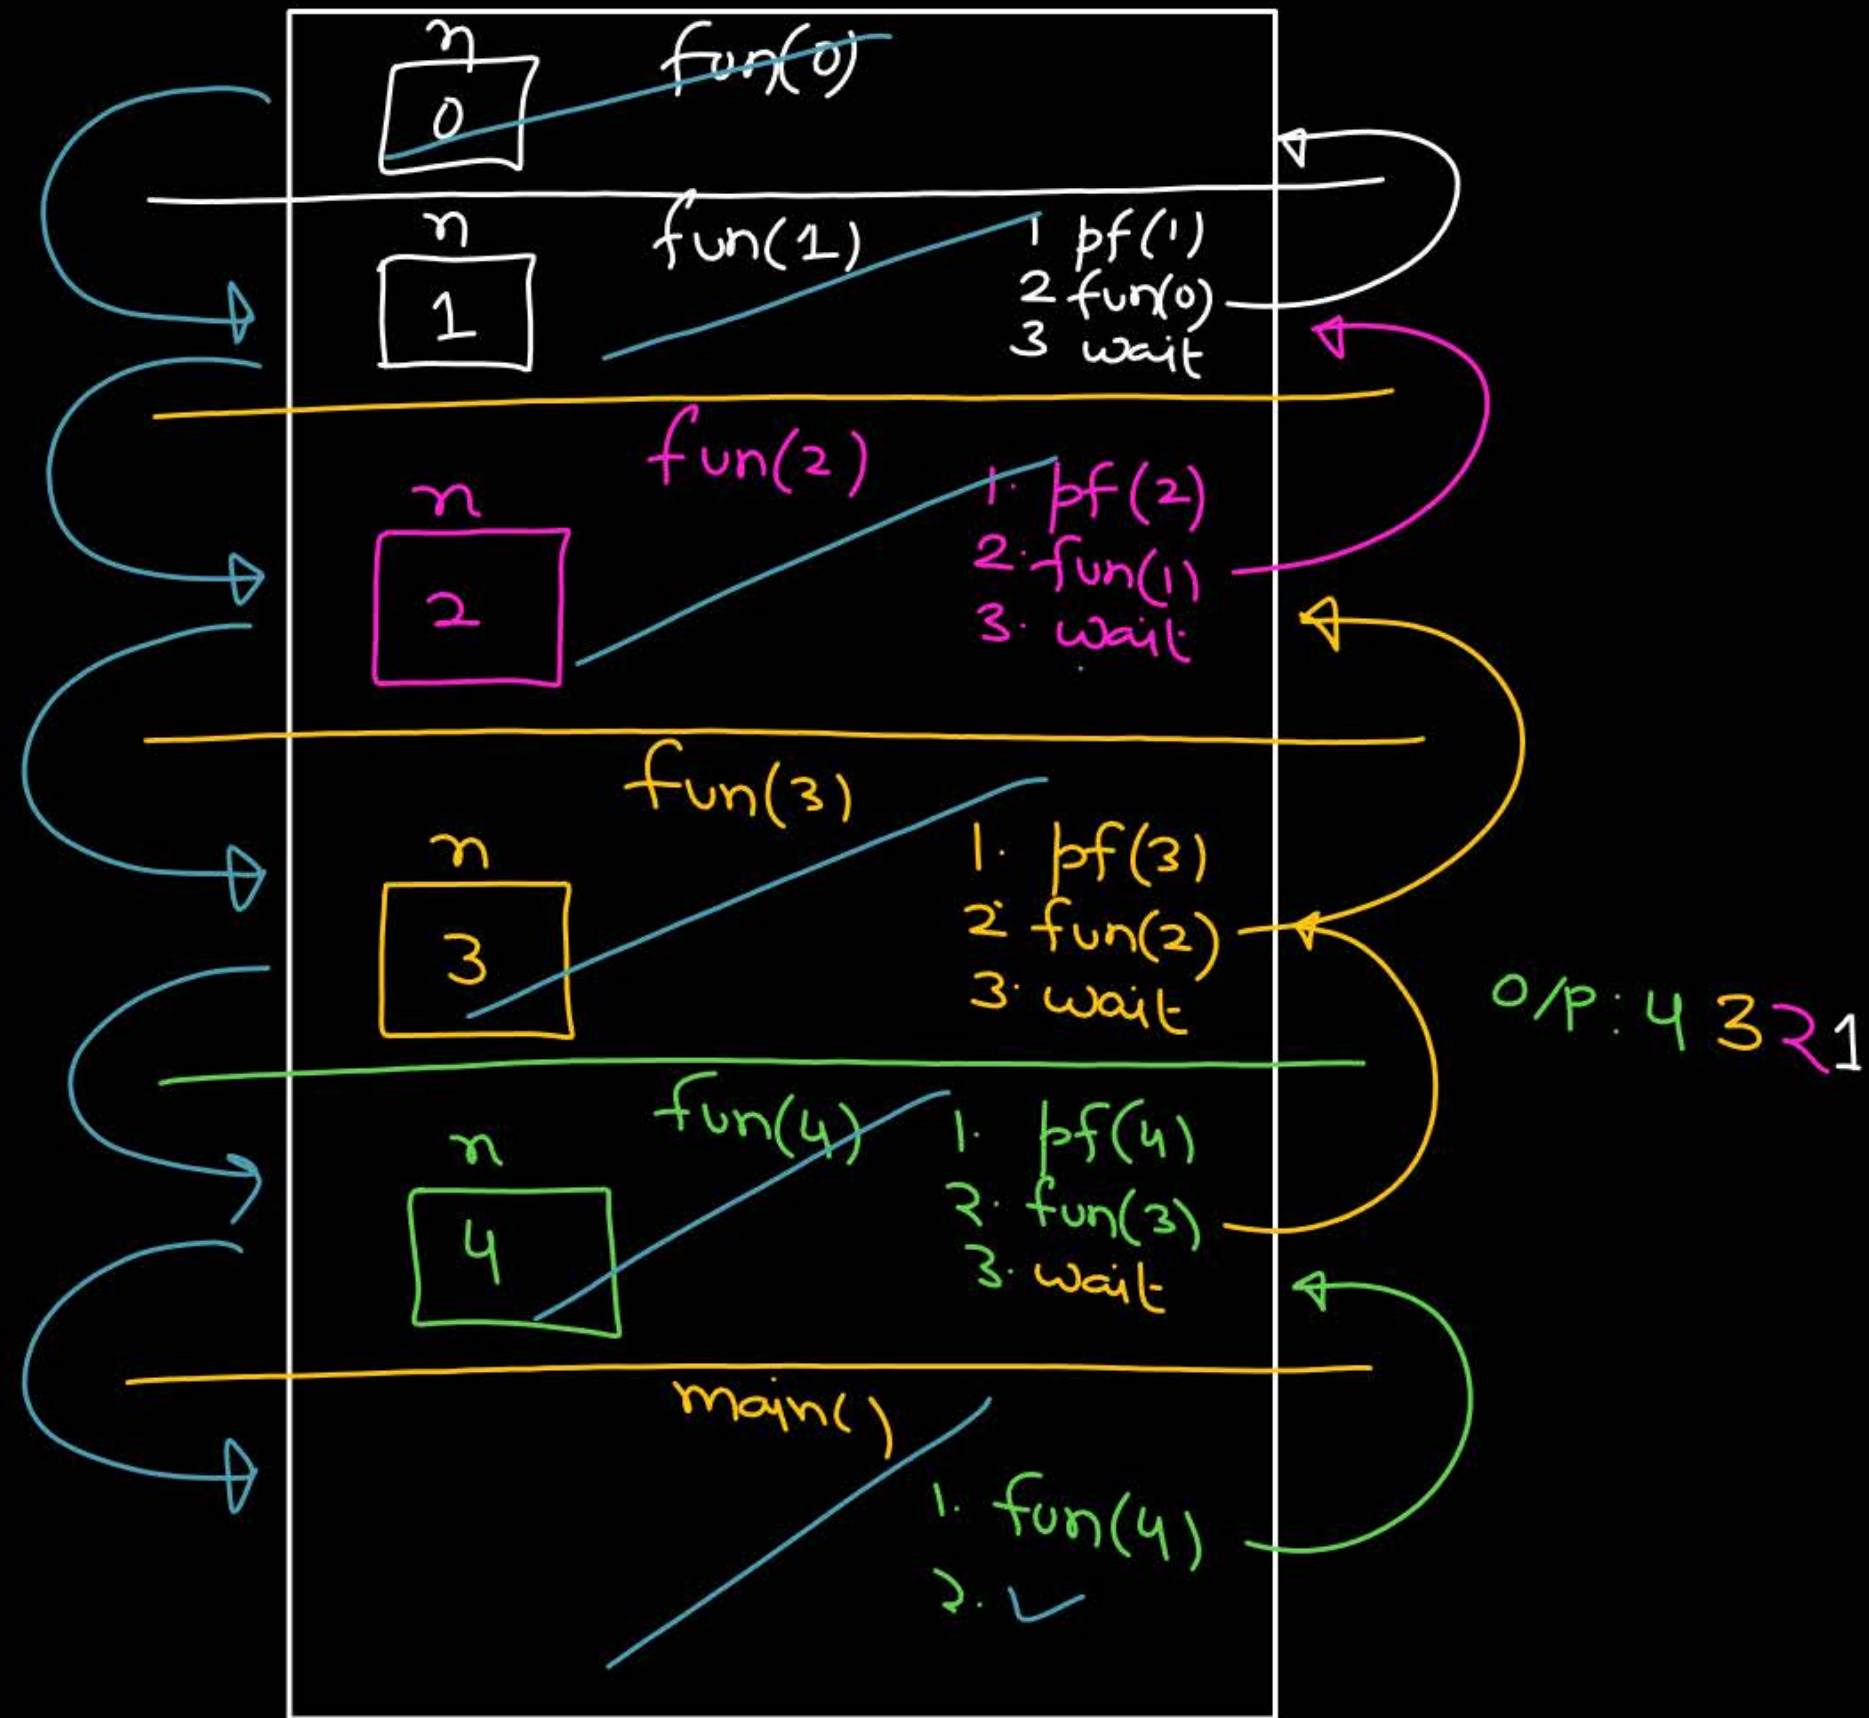 n fun(0)
0
n fun(1) 1 pf(1)
2 fun(0)
1
3 wait
fun(2)
n 1. pf(2)
2. fun(1)
2
3. wait
fun(3)
n 1. pf(3)
2. fun(2)
3
3. wait
O/P: 4 3 2 1
fun(4) 1. pf(4)
n
2. fun(3)
4
3. wait
main()
1. fun(4)
2. ✓